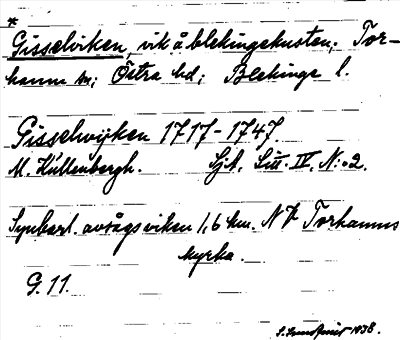 *
Gisselviken, vik å blekingekusten; Tor-
hamn sn; Östra hd; Blekinge l.
Gisselwijken 1717-1747.
M. Kullenbergh. SjA. Litt. IV. N:o 2.
Synbarl. avsågs viken 1,6 km. NV Torhamns
kyrka.
G. 11.
1938.